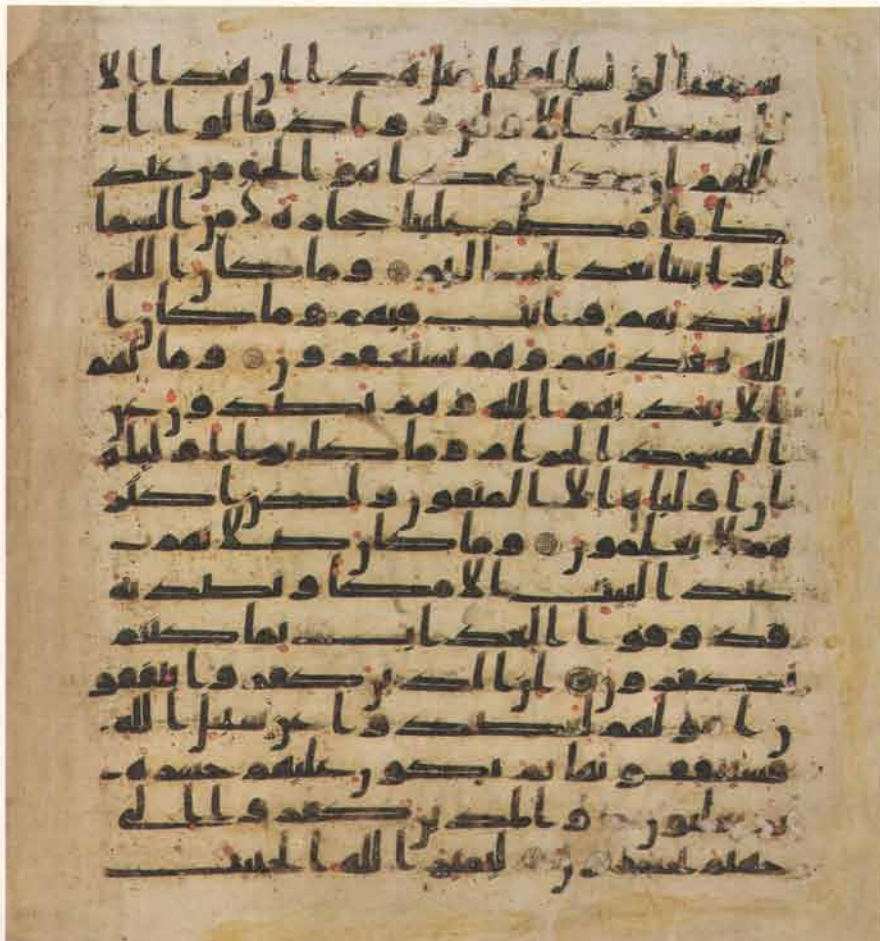 سمعنا لو نشا لقلنا مثل هذا ان هذا الا
ا سطير الاولين واذ قالوا ا
للهم ان كان هذا هو الحق من عند
ك فامطر علينا حجارة من السما
ا وائتنا بعذاب اليم وما كان الله
ليعذبهم وانت فيهم وما كان ا
لله معذبهم وهم يستغفرون وما لهم
الا يعذبهم الله وهم يصدون عن
المسجد الحرام وما كانوا اولياه
ان اولياه الا المتقون ولكن اكثر
هم لا يعلمون وما كان صلاتهم
عند البيت الا مكا وتصدية
فذوقوا العذاب بما كنتم
تكفرون ان الذين كفروا ينفقو
ن امولهم ليصدوا عن سبيل الله
فسينفقونها ثم تكون عليهم حسرة
ثم يغلبون والذين كفروا الى
جهنم يحشرون ليميز الله الخبيث